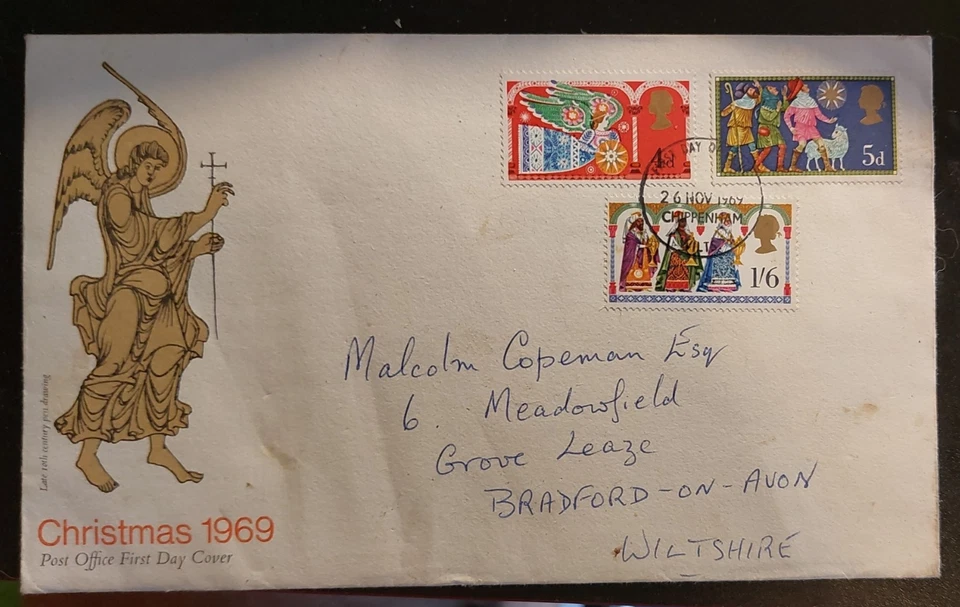 4d
5d
DAY O
26 NOV 1969
CHIPPENHAM
1/6
Malcolm Copeman Esq
6. Meadowfield
Grove Leaze
BRADFORD-ON-AVON
WILTSHIRE
Late 10th century pen drawing
Christmas 1969
Post Office First Day Cover